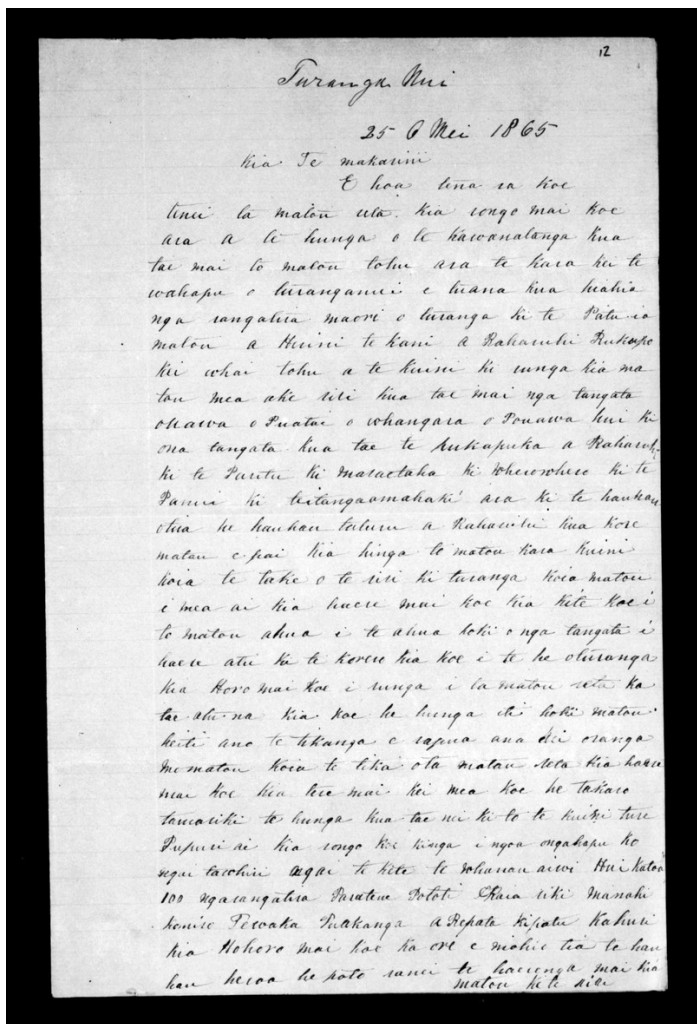 12
Turanga Nui
25 o Mei 1865
Kia Te makarini
E hoa tena ra koe
tenei ta matou reta kia rongo mai koe
ara a te hunga o te kawanatanga kua
tae mai to matou tohu ara te kara kei te
wahapu o turanganui e tu ana kua huihia
nga rangatira maori o turanga ki te Patu ia
matou a Hirini te kani a Raharuhi Rukupo
kei whai tohu a te kuini ki runga kia ma
tou mea ake riri kua tae mai nga tangata
o Puatai o whangara o Pouawa hui ki
ona tangata kua tae te pukapuka a Raharuhi
ki te ki maraetaha ki wherowhero ki te
ki teitangaamahaki ara ki te hauhau
otira he hauhau tuturu a Raharuhi kua kore
matou e pai kia hinga to matou kara kuini
koia te take o te riri ki turanga koia matou
i mea ai kia haere mai koe kia kite koe i
to matou ahua i te ahua hoki o nga tangata i
haere atu ki te korero kia koe i te he oturanga
kia Horo mai koe i runga i ta matou reta ka
tae atu na kia koe he hunga iti hoki matou
heiti ano te tikanga e rapua ana hei oranga
mo matou koia te tika o ta matou reta kia haere
mai koe kia tere mai kei mea koe he takaro
tamariki te hunga kua tae nei ki to te kuini ture
Pupuri ai kia rongo koe kinga i ngoa ongahapu ko
ngai tawhiri ngai te kete te whanau aiwi Hui katoa
100 ngarangatira Paratene Pototi Raia riki Manahi
Tewaka a Repata Kipatu Kahuti
kia Hohoro mai koe ka ore e mohio tia te hau
hau heoa he poto ranei te haerenga mai kia
matou ki te riri